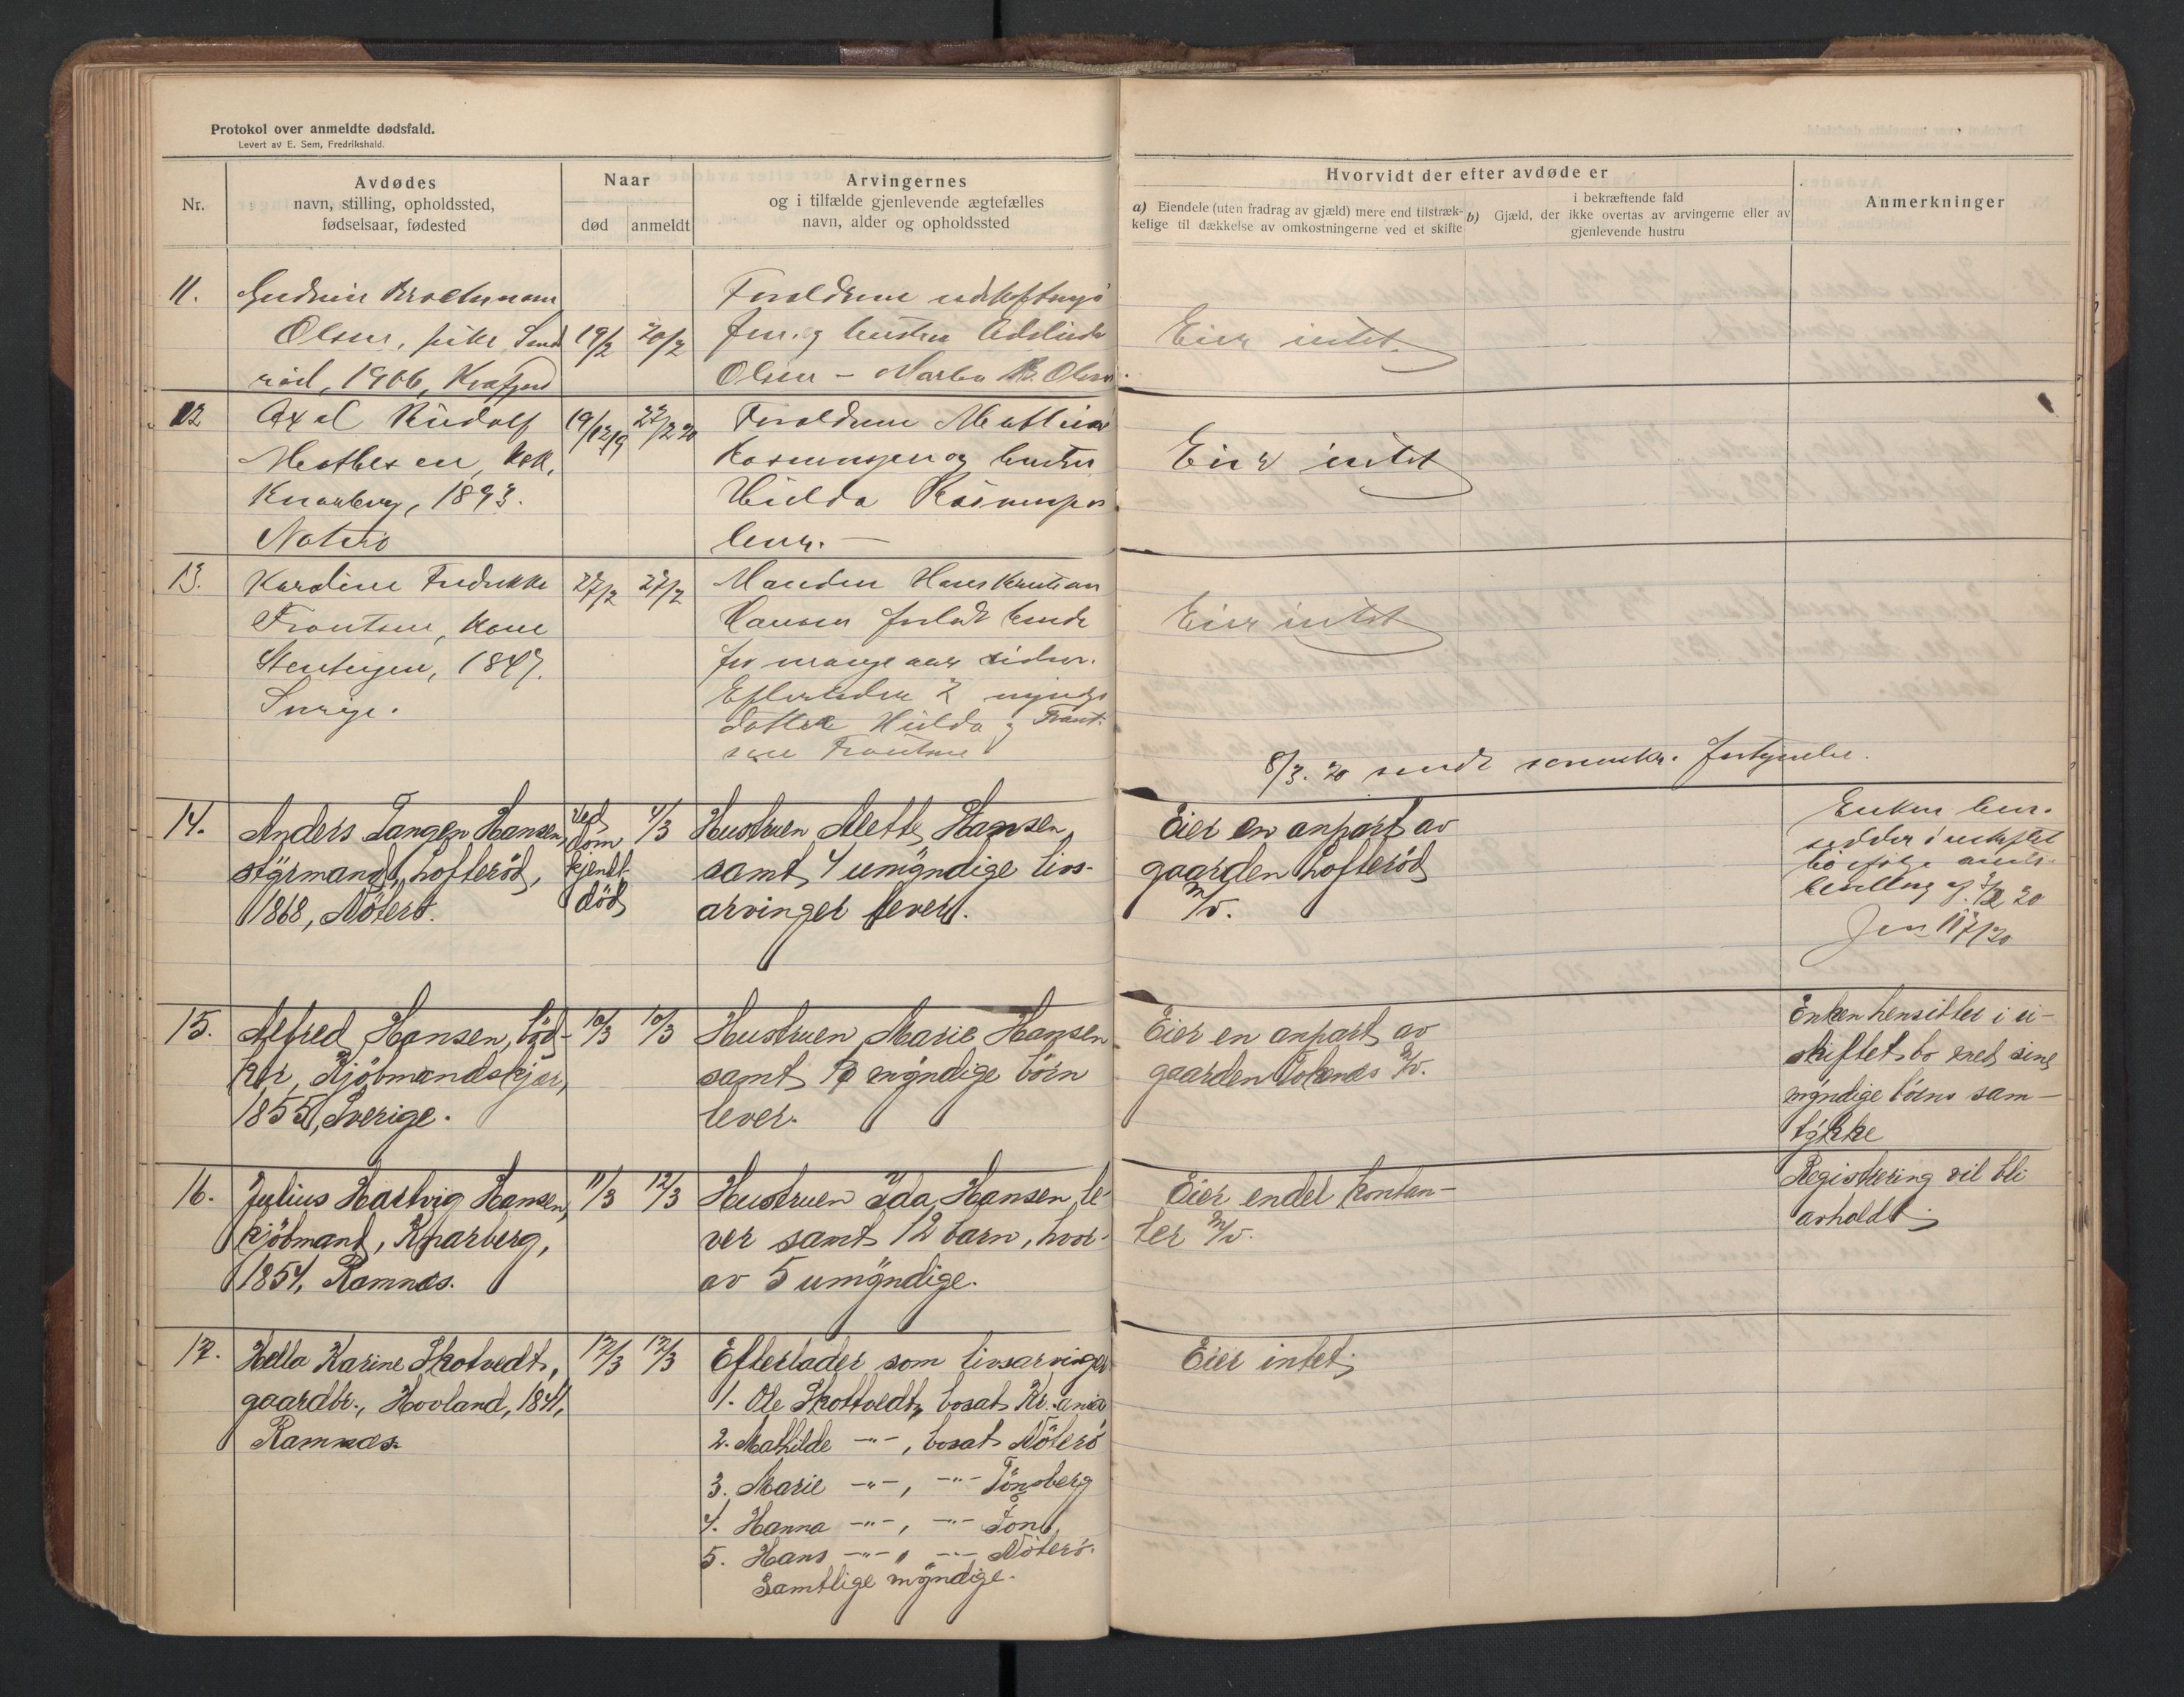 Protokol over anmeldte dødsfald.
Levert av E. Sem, Fredrikshald.
Nr.
Avdødes
navn, stilling, opholdssted,
fødselsaar, fødested
Naar
død
anmeldt
Arvingernes
og i tilfælde gjenlevende ægtefælles
navn, alder og opholdssted
Hvorvidt der efter avdøde er
a) Eiendele (uten fradrag av gjæld) mere end tilstræk-
kelige til dækkelse av omkostningerne ved et skifte
b) Gjæld, der i bekræftende fald
ikke overtas av arvingerne eller av
gjenlevende hustru
Anmerkninger
11.
Olsen, pike
1906,
19/2
20/2
Forældrene
og hustru
Olsen – B. Olsen
Eier intet.
12
Axel Rudolf
Mathesen,
Knarberg, 1893.
Nøterø
19/12 19
27/2 20
Forældrene
og hustru
Hulda
Eier intet
13.
Karoline Fredrikke
Frantsen, kone
1847.
Sverige.
27/2
27/2
Manden Hans Kristian
Hansen forlot hende
for mange aar siden.
Efterlader 2 myndige
døttre Hulda og
Frantsen
Eier intet
8/3. 20 sendt
14.
Anders Tangen Hansen,
styrmand, Lofterød,
1868, Nøterø.
Ved
dom
kjendt
død
4/3
Hustruen Alette Hansen,
samt 4 umyndige livs-
arvinger lever.
Eier en anpart av
gaarden Lofterød
m/v.
Enken hen-
sidder i uskiftet
bo ifølge
bevilling af 20
15.
Alfred Hansen, bød-
ker, Kjøbmandskjær,
1855, Sverige.
10/3
10/3
Hustruen Marie Hansen
samt 10 myndige børn
lever.
Eier en anpart av
gaarden m/v.
Enken hensitter i u-
skiftet bo med sine
myndige børns sam-
tykke
16.
Julius Hartvig Hansen,
kjøbmand, Knarberg,
1854, Ramnæs.
11/3
12/3
Hustruen Ida Hansen le-
ver samt 12 barn, hvor-
av 5 umyndige.
Eier endel kontan-
ter m/v.
Registrering vil bli
avholdt.
17.
Hella Karine Skotvedt,
gaardbr., Hovland, 1841,
Ramnæs.
12/3
12/3
Efterlader som livsarvinger
1. Ole Skottvedt, bosat Kr.ania
2. Mathilde -"-, bosat Nøterø
3. Marie -"-, -"- Tønsberg
4. Hanna -"-, -"-
5. Hans -"-, -"- Nøterø.
Samtlige myndige.
Eier intet.